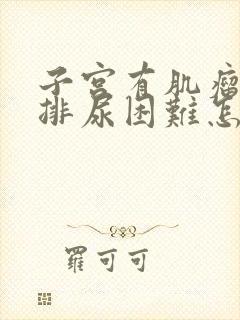 子宫有肌瘤
排尿困難怎
羅可可